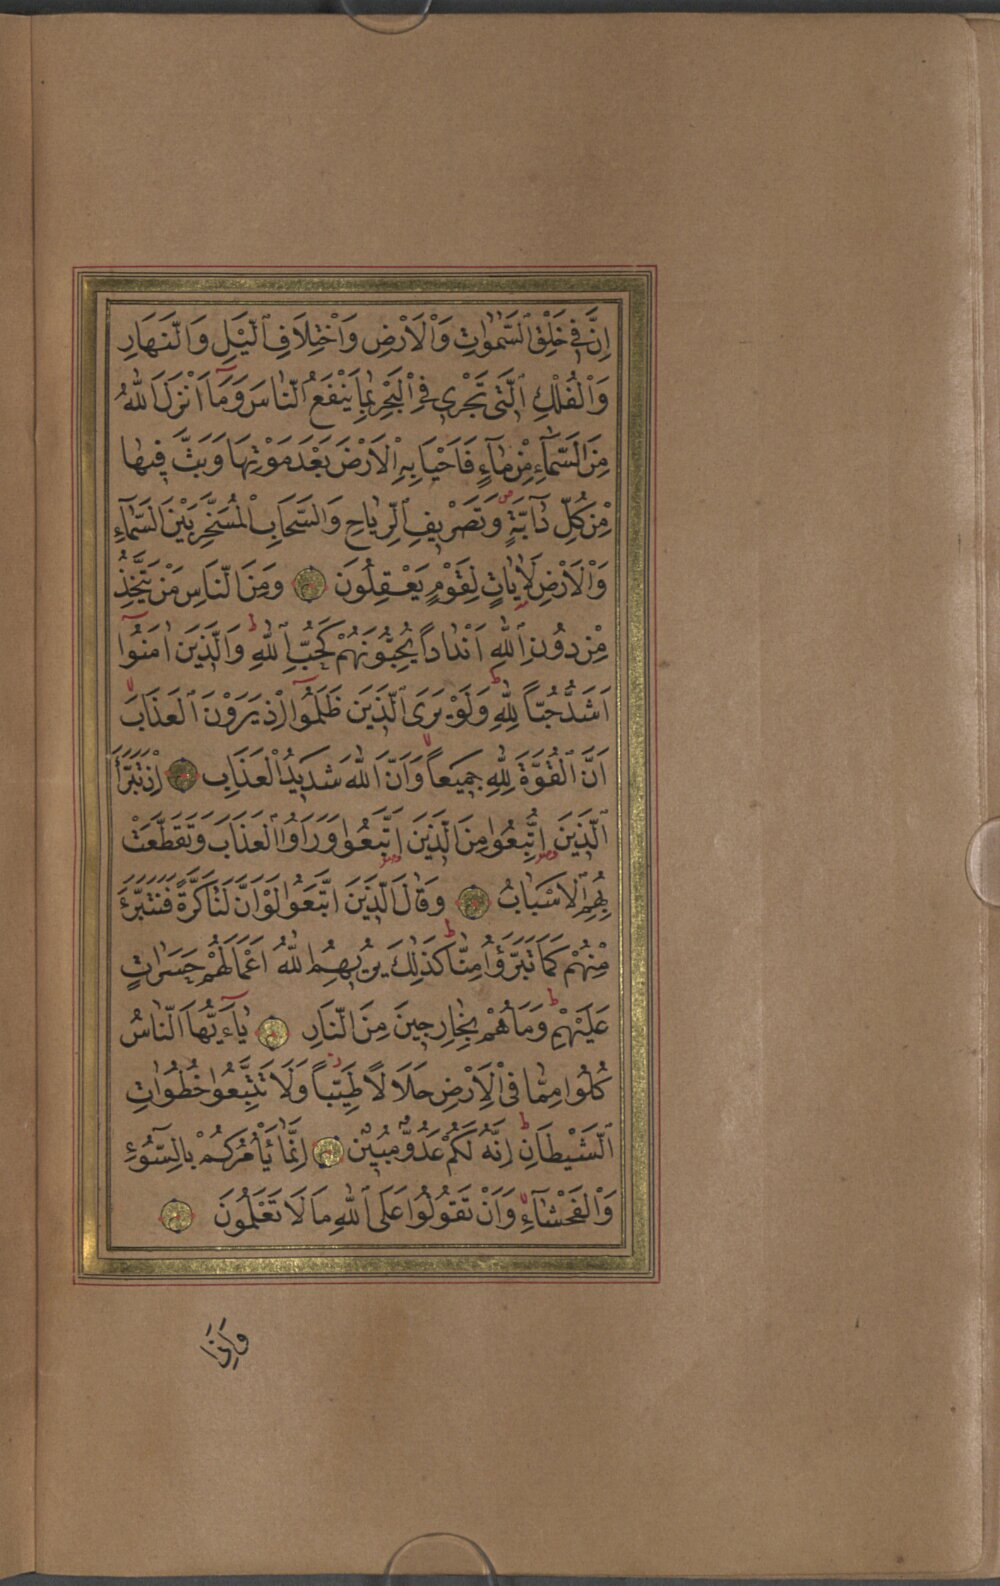 اِنَّ فٖي خَلْقِ السَّمٰوَاتِ وَالْاَرْضِ وَاخْتِلَافِ الَّيْلِ وَالنَّهَارِ
وَالْفُلْكِ الَّتٖي تَجْرٖي فِي الْبَحْرِ بِمَا يَنْفَعُ النَّاسَ وَمَٓا اَنْزَلَ اللّٰهُ
مِنَ السَّمَٓاءِ مِنْ مَٓاءٍ فَاَحْيَا بِهِ الْاَرْضَ بَعْدَ مَوْتِهَا وَبَثَّ فٖيهَا
مِنْ كُلِّ دَٓابَّةٍ ص وَتَصْرٖيفِ الرِّيَاحِ وَالسَّحَابِ الْمُسَخَّرِ بَيْنَ السَّمَٓاءِ
وَالْاَرْضِ لَاٰيَاتٍ لِقَوْمٍ يَعْقِلُونَ وَمِنَ النَّاسِ مَنْ يَتَّخِذُ
مِنْ دُونِ اللّٰهِ اَنْدَاداً يُحِبُّونَهُمْ كَحُبِّ اللّٰهِ ط وَالَّذٖينَ اٰمَنُٓوا
اَشَدُّ حُبّاً لِلّٰهِ ط وَلَوْ يَرَى الَّذٖينَ ظَلَمُٓوا اِذْ يَرَوْنَ الْعَذَابَ لا
اَنَّ الْقُوَّةَ لِلّٰهِ جَمٖيعاً لا وَاَنَّ اللّٰهَ شَدٖيدُ الْعَذَابِ اِذْ تَبَرَّاَ
الَّذٖينَ اتُّبِعُوا مِنَ الَّذٖينَ اتَّبَعُوا وَرَاَوُا الْعَذَابَ وَتَقَطَّعَتْ
بِهِمُ الْاَسْبَابُ وَقَالَ الَّذٖينَ اتَّبَعُوا لَوْ اَنَّ لَنَا كَرَّةً فَنَتَبَرَّاَ
مِنْهُمْ كَمَا تَبَرَّؤُا مِنَّا ط كَذٰلِكَ يُرٖيهِمُ اللّٰهُ اَعْمَالَهُمْ حَسَرَاتٍ
عَلَيْهِمْ ط وَمَا هُمْ بِخَارِجٖينَ مِنَ النَّارِ يَٓا اَيُّهَا النَّاسُ
كُلُوا مِمَّا فِي الْاَرْضِ حَلَالًا طَيِّباً ز وَلَا تَتَّبِعُوا خُطُوَاتِ
الشَّيْطَانِ ط اِنَّهُ لَكُمْ عَدُوٌّ مُبٖينٌ اِنَّمَا يَاْمُرُكُمْ بِالسُّٓوءِ
وَالْفَحْشَٓاءِ وَاَنْ تَقُولُوا عَلَى اللّٰهِ مَا لَا تَعْلَمُونَ
وَاِذَا